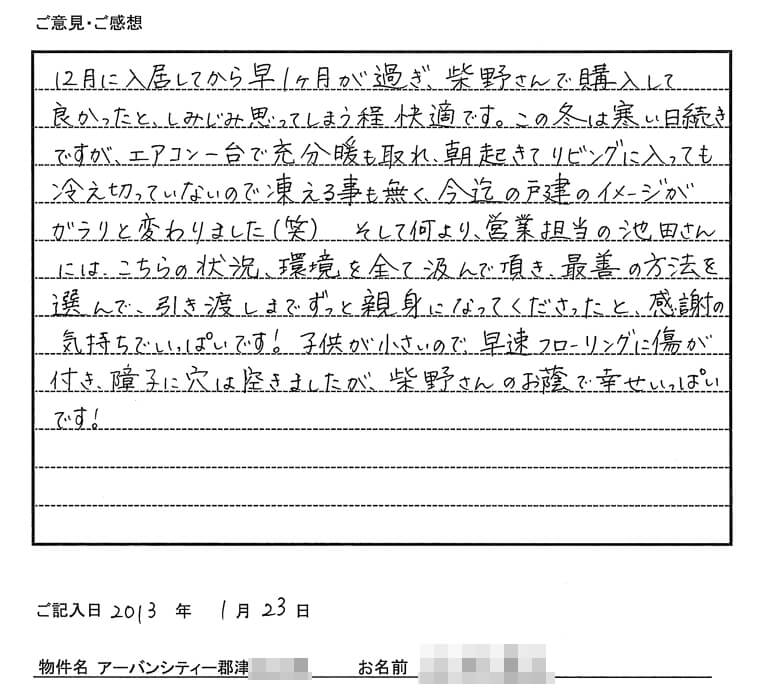 ご意見・ご感想
12月に入居してから早1ヶ月が過ぎ、柴野さんで購入して
良かったと、しみじみ思ってしまう程 快適です。この冬は寒い日続き
ですが、エアコン一台で充分暖も取れ、朝起きてリビングに入っても
冷え切っていないので凍える事も無く、今迄の戸建のイメージが
ガラリと変わりました(笑) そして何より、営業担当の池田さん
には、こちらの状況、環境を全て汲んで頂き、最善の方法を
選んで、引き渡しまでずっと親身になってくださったと、感謝の
気持ちでいっぱいです!子供が小さいので、早速フローリングに傷が
付き、障子に穴は空きましたが、柴野さんのお蔭で幸せいっぱい
です!
ご記入日 2013 年 1月 23日
物件名 アーバンシティー郡津 お名前